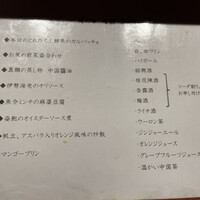 ◆本日のとれたて鮮魚のカルパッチョ
◆お気の前菜盛合わせ
◆真鯛の蒸し物 中国醤油
◆伊勢海老のチリソース
◆黄金ミンチの麻婆豆腐
◆蒸鮑のオイスターソース煮
◆帆立、アスパラ入りオレンジ風味の炒飯
マンゴープリン
・白、赤ワイン
・ハイボール
・紹興酒
・桂花陳酒
・杏露酒
・梅酒
・ライチ酒
ソーダ割り
お申し付け
・ウーロン茶
・ジンジャーエール
・オレンジジュース
・グレープフルーツジュース
・温かい中国茶